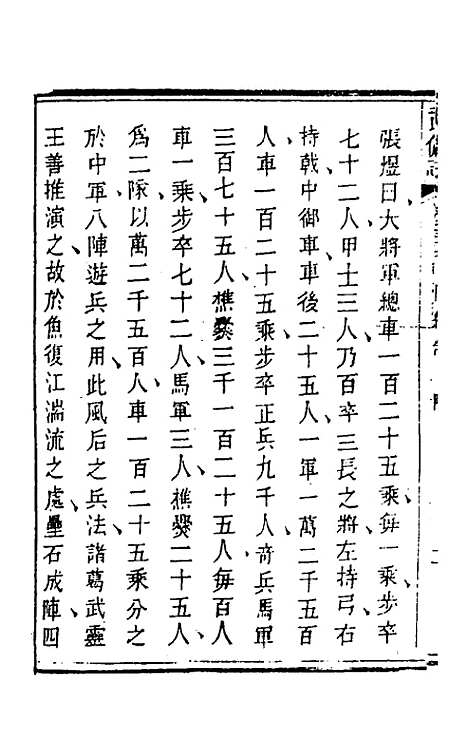 武備志
張煜曰大將軍總車一百二十五乘、每一乘、步卒
七十二人甲士三人乃百卒三長之將左持弓右
持戟中御車車後二十五人、一軍一萬二千五百
人車一百二十五乘步卒正兵九千人、奇兵馬軍
三百七十五人樵爨三千一百二十五人、每百人
車一乘步卒七十二人、馬軍三人、樵爨二十五人、
爲二隊以萬二千五百人、車一百二十五乘分之
於中軍八陣遊兵之用、此風后之兵法、諸葛武靈
王善推演之、故於魚復江湍流之處、壘石成陣四